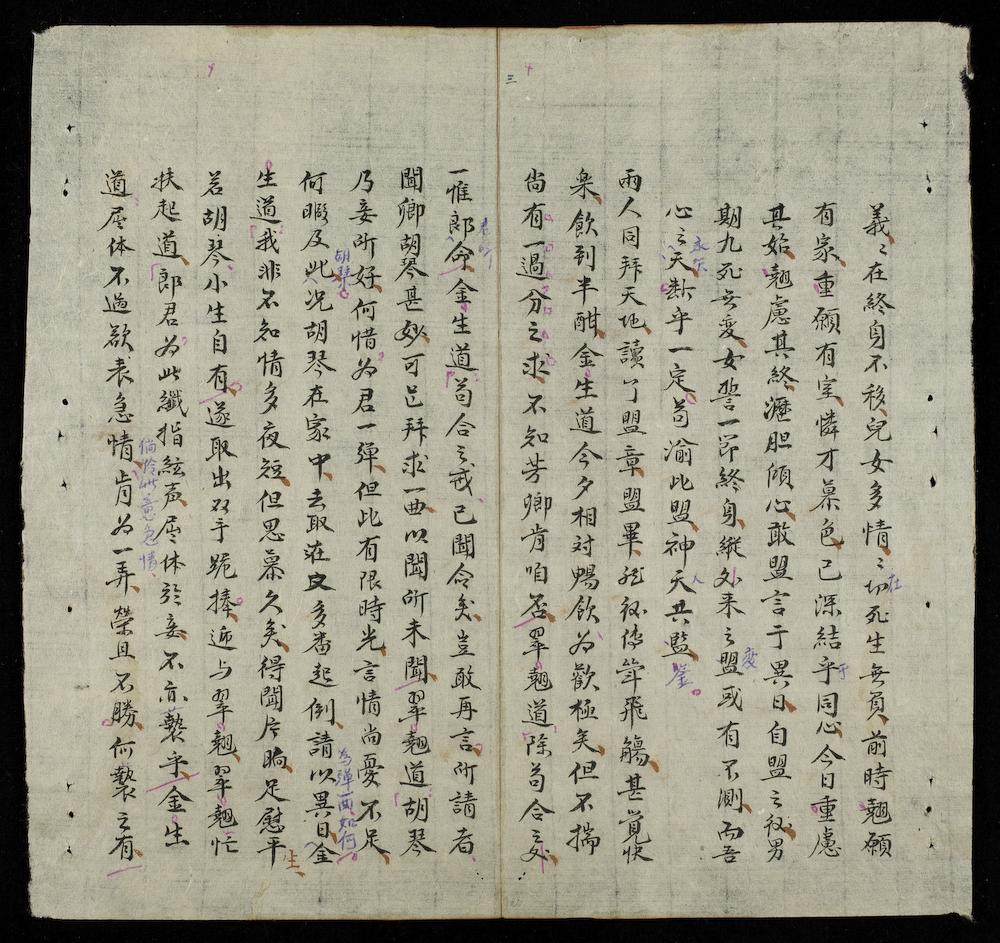 義〻在終身不移兒女多情〻切死生無負前時翹願
在
有家重願有室憐才慕色已深結乎同心今日重慮
于
其始翹慮其終瀝胆傾心敢盟言于異日自盟之後男
期九死無变女誓一節終身縱外来之盟或有不測而吾
變
心之天断乎一定苟渝此盟神天共監
永矢
人
鑒
兩人同拜天地讀了盟章盟畢然後傳筆飛觴甚覚快
楽飲到半酣金生道今夕相対暢飲为歡極矣但不揣
尚有一過分之求不知芳卿肯咱否翠翹道除苟合之外
三
一惟郎命金生道苟合之戒已聞命矣豈敢再言所請者
聞卿胡琴甚妙可已拜求一曲以聞所未聞翠翹道胡琴
乃妾所好何惜为君一彈但此有限時光言情尚憂不足
何暇及此况胡琴在家中去取在文多畨起倒請以異日金
胡琴
為彈一曲如何
生道我非不知情多夜短但思慕久矣得聞片晌足慰平
生
若胡琴小生自有遂取出双手跪捧逓与翠翹翠翹忙
扶起道郎君为此纖指絃声屈体於妾不亦褻乎金生
道屈体不過欲表急情肯为一弄榮且不勝何褻之有
倘怜此意急情